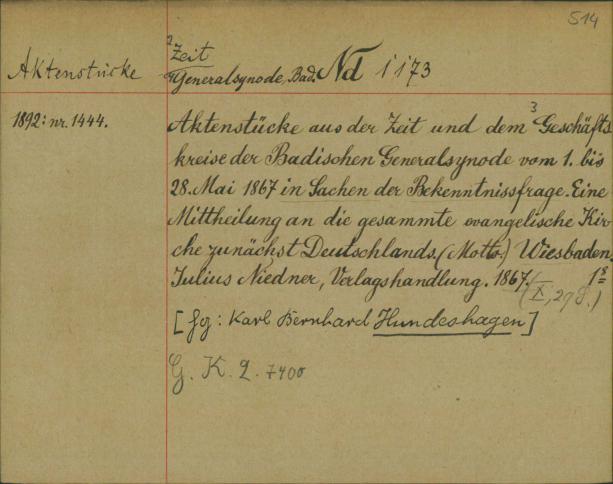 514
Aktenstücke
2 Zeit
Generalsynode, Bad. Nd 1173
1892: nr. 1444.
Aktenstücke aus der Zeit und dem 3 Geschäfts
kreise der Badischen Generalsynode vom 1. bis
28. Mai 1867 in Sachen der Bekenntnissfrage. Eine
Mittheilung an die gesammte evangelische Kir-
che zunächst Deutschlands. (Motto.) Wiesbaden,
Julius Niedner, Verlagshandlung. 1867.
[hrsg: Karl Bernhard Hundeshagen]
G. K. 2. 7400